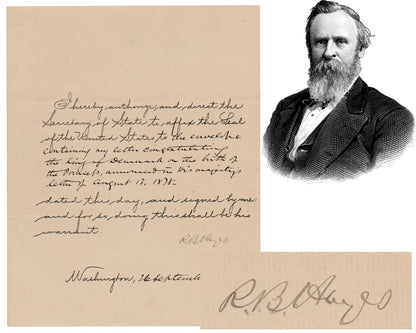 I hereby authorize and direct the
Secretary of State to affix the Seal
of the United States to the envelope
containing my letter congratulating
the King of Denmark on the birth of
the Princess, announced in His Majesty's
letter of August 17, 1878
dated this day, and signed by me:
and for so doing this shall be his
warrant
R.B. Hayes
Washington, 26 September
R.B. Hayes